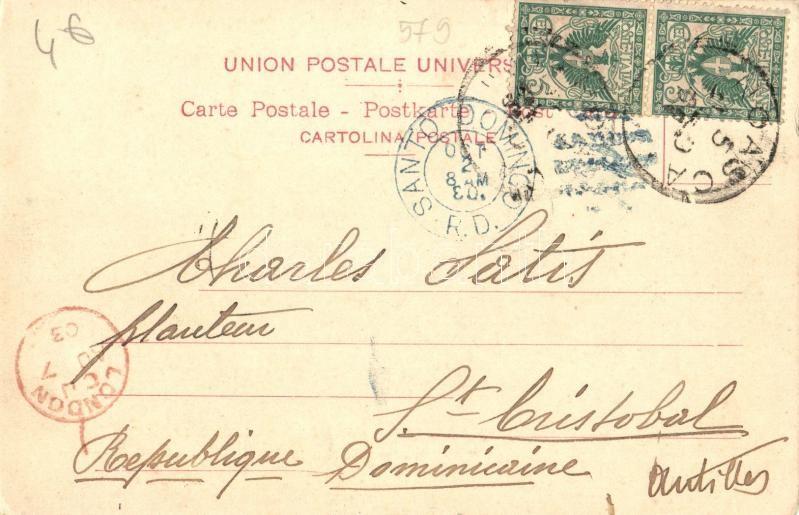 46
579
UNION POSTALE UNIVERS
Carte Postale - Postkarte Post
CARTOLINA POSTALE
SANTO DOMINGO
OCT
2
8 AM
R.D.
Charles Satis
planteur
St. Cristobal
Republique Dominicaine
Antilles
LONDON
03